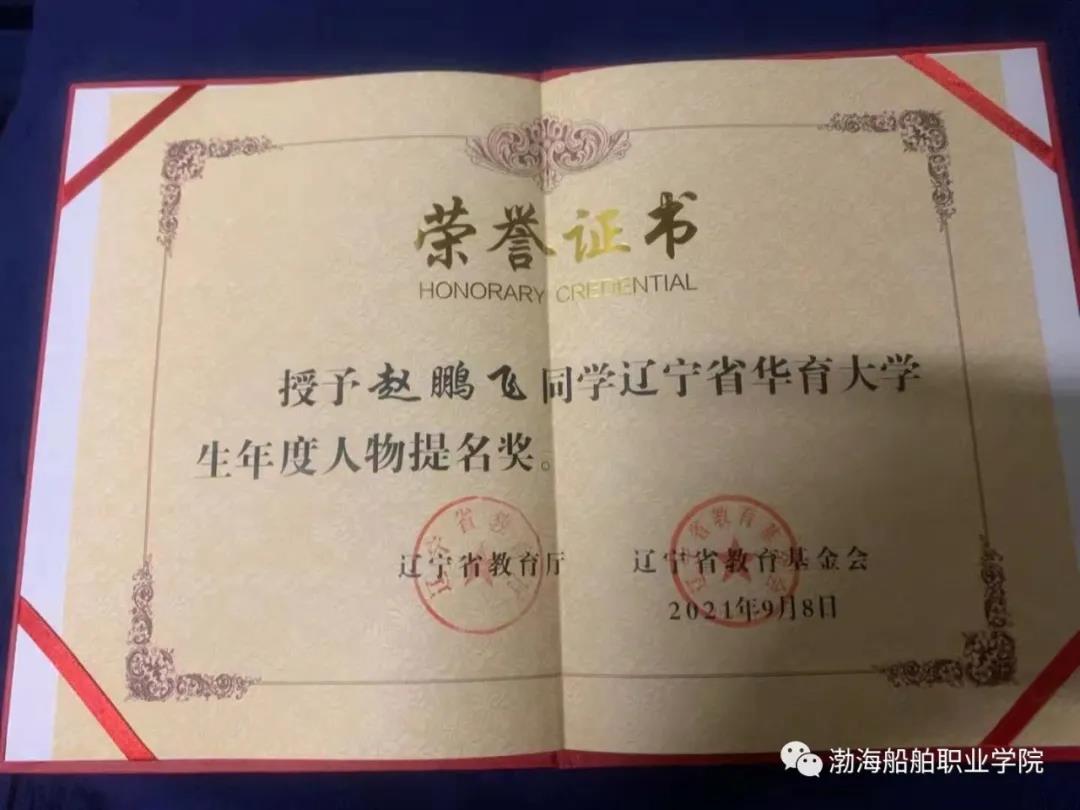 荣誉证书
HONORARY CREDENTIAL
授予赵鹏飞同学辽宁省华育大学
生年度人物提名奖。
辽宁省教育厅 辽宁省教育基金会
2021年9月8日
渤海船舶职业学院